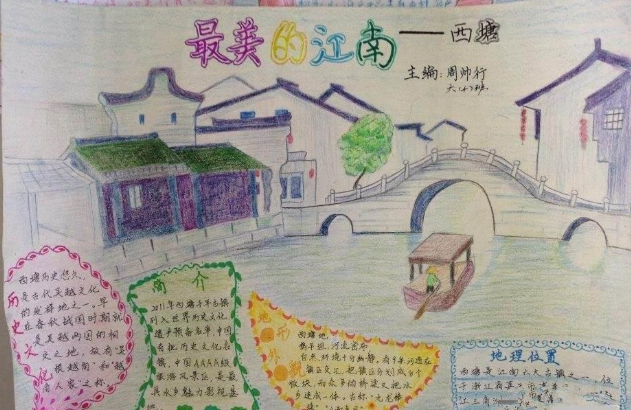 最美的江南——西塘
主编:周帅行
六(4)班
历史文化
西塘历史悠久,
是古代吴越文化
的发祥地之一。早
在春秋战国时期就
是吴越两国的相
交之地,故有"吴
根越角"和"越
角人家"之称。
简介
2011年西塘千年古镇
列入世界历史文化
遗产预备名单,中国
首批历史文化名
镇,中国AAAA级
旅游风景区,是最
具水乡魅力影视基
地形外貌
西塘地
势平坦,河流密布
自然环境十分幽静。有9条河道在
镇区交汇,把镇区分划成8个
板块,而众多的桥梁又把水
乡连成一体。古称"九龙捧
地理位置
西塘是江南六大古镇之一,位
于浙江省嘉
江三角